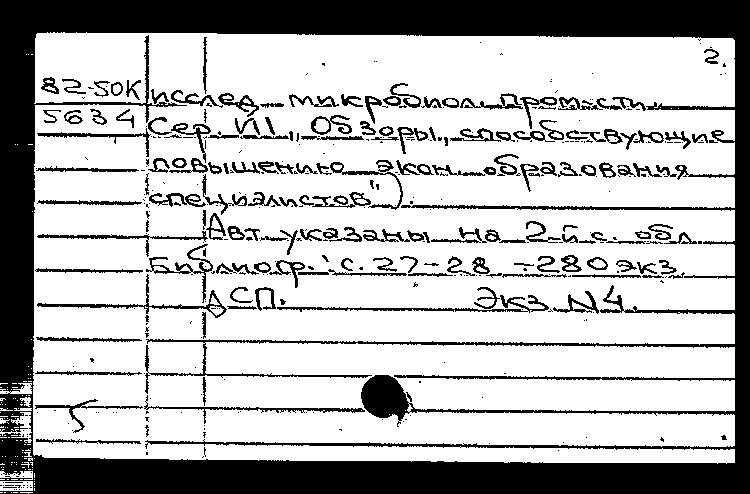 2.
82-50К исслед. микробиол. пром-сти.
5634 Сер. ЙІ, "Обзоры, способствующие
повышению экон. образования
специалистов").
Авт. указаны на 2-й с. обл
Библиогр.: с. 27-28 - 280 экз.
СП. Экз N4.
5